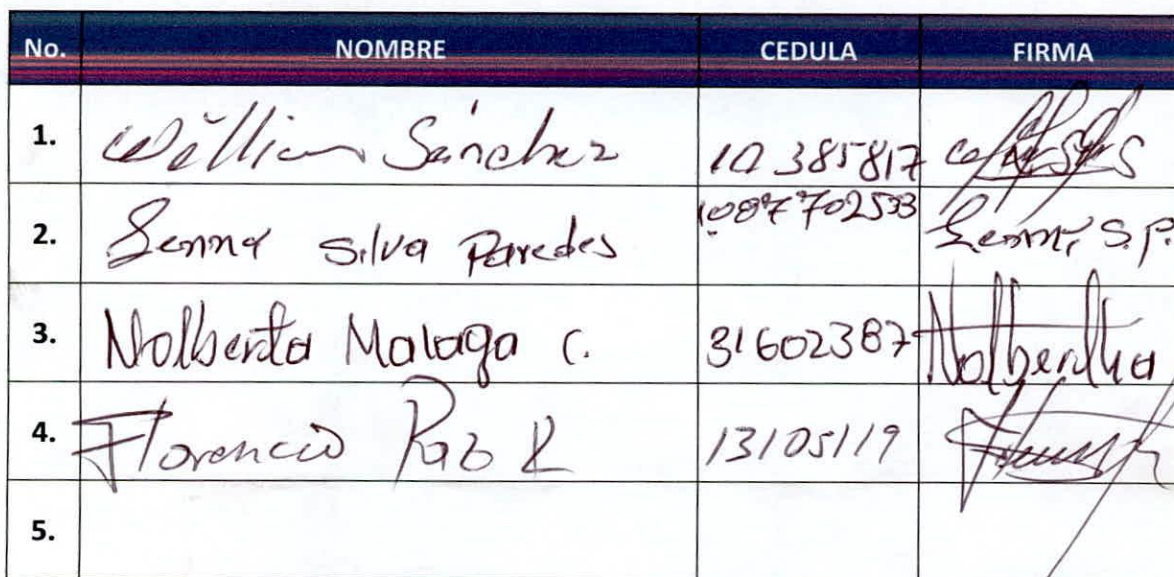 No. NOMBRE CEDULA FIRMA
1. William Sánchez 10 385817
2. Silva Paredes 1087702533 S.P.
3. Nolberta Malaga C. 31602387 Nolbertha
4. Florencio Paz R 13105119
5.